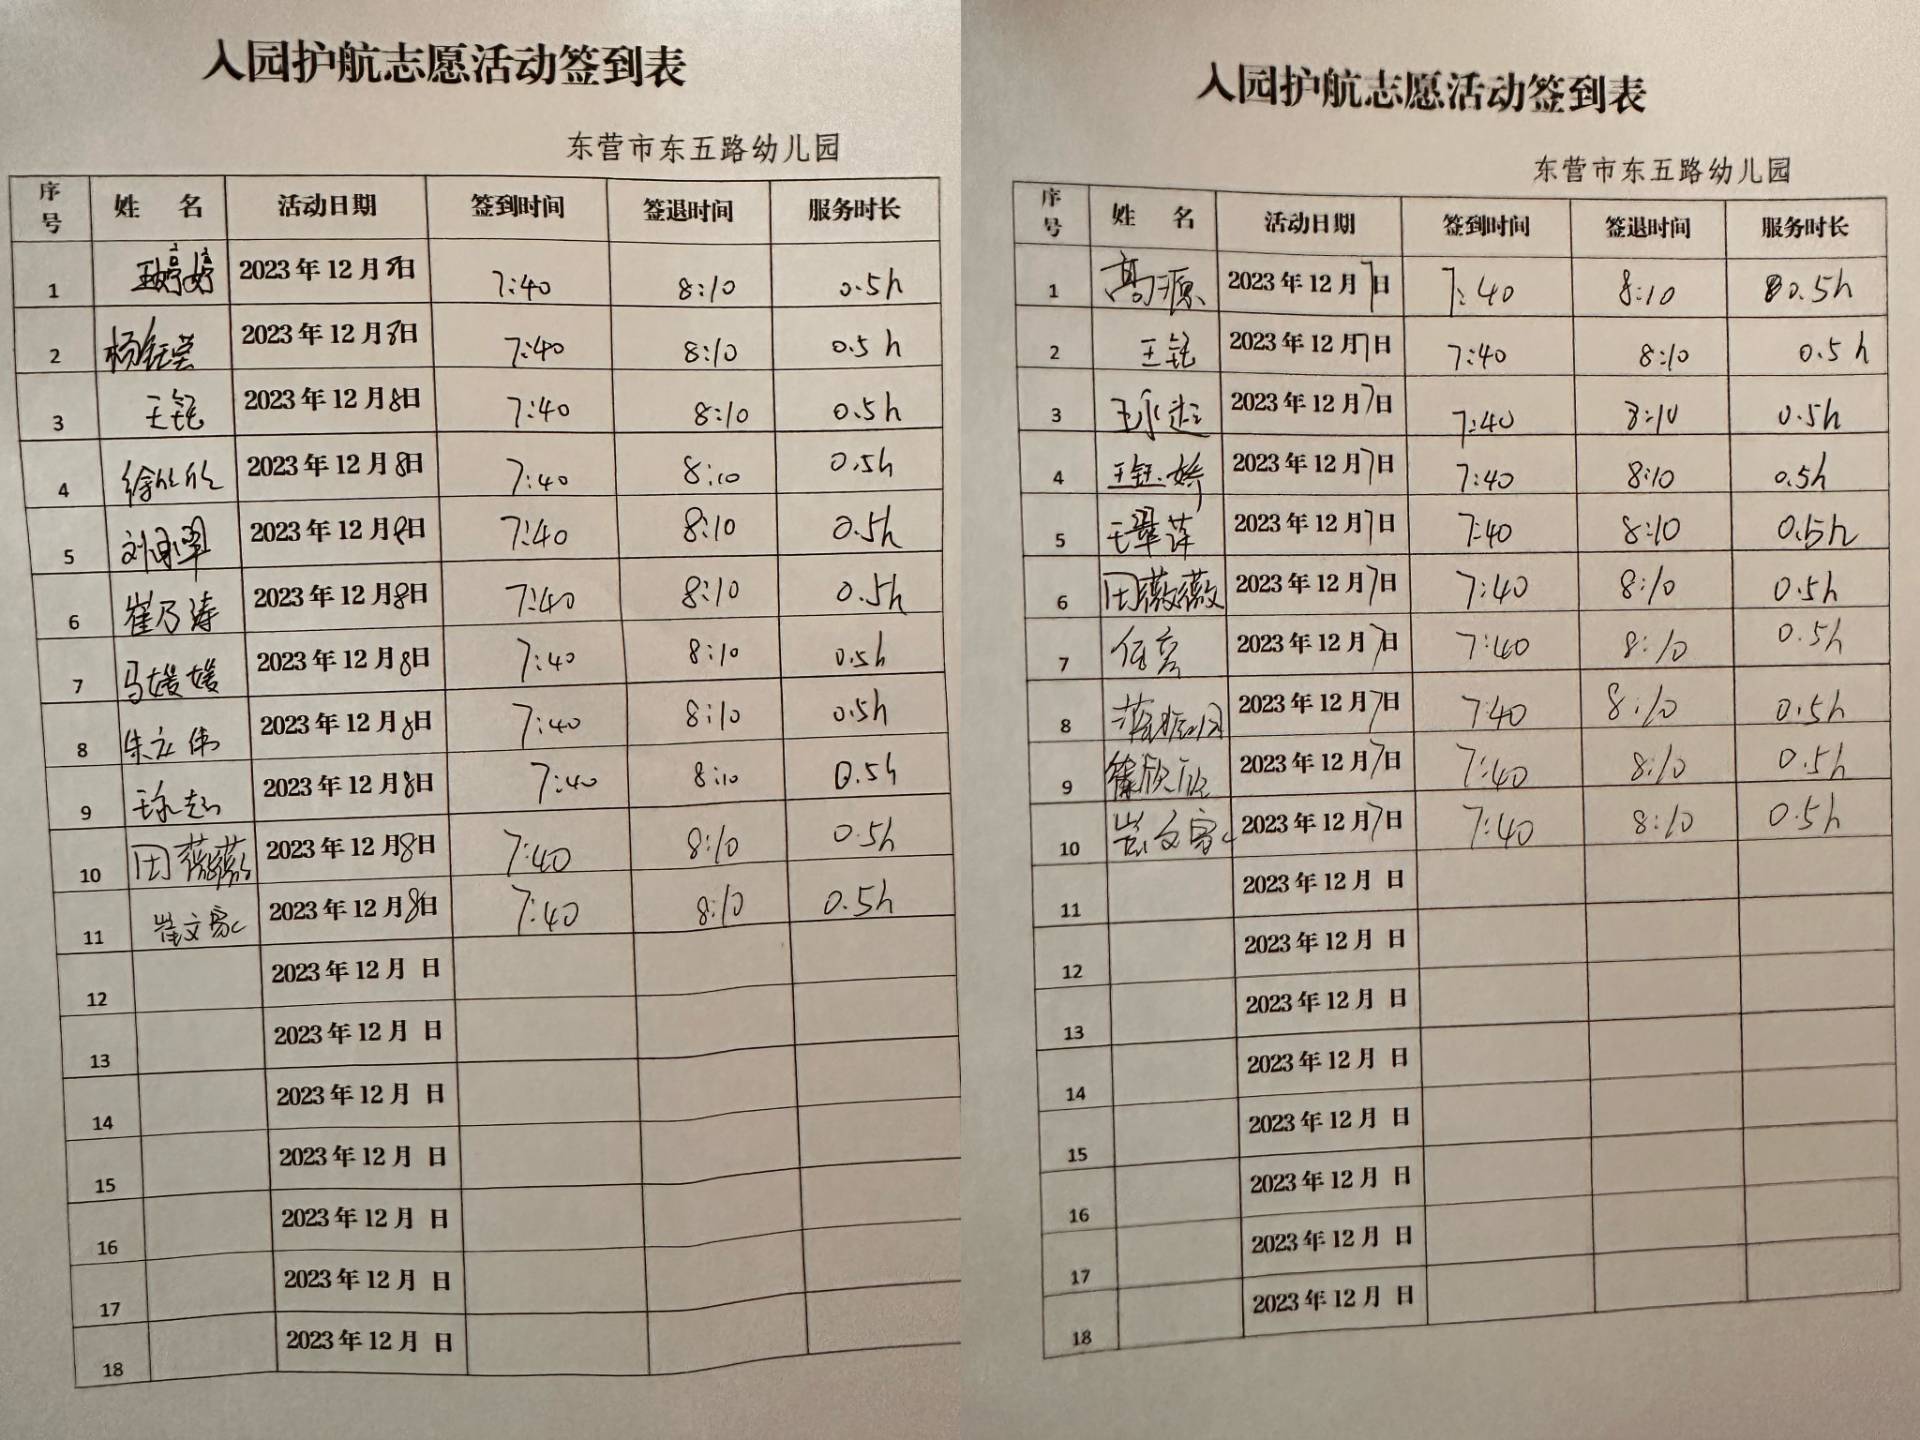 入园护航志愿活动签到表
东营市东五路幼儿园
序号 姓 名 活动日期 签到时间 签退时间 服务时长
1 王婷婷 2023年12月8日 7:40 8:10 0.5h
2 杨钰莹 2023年12月8日 7:40 8:10 0.5h
3 王铭 2023年12月8日 7:40 8:10 0.5h
4 2023年12月8日 7:40 8:10 0.5h
5 2023年12月8日 7:40 8:10 0.5h
6 崔乃涛 2023年12月8日 7:40 8:10 0.5h
7 马媛媛 2023年12月8日 7:40 8:10 0.5h
8 朱立伟 2023年12月8日 7:40 8:10 0.5h
9 王永起 2023年12月8日 7:40 8:10 0.5h
10 田薇薇 2023年12月8日 7:40 8:10 0.5h
11 崔文 2023年12月8日 7:40 8:10 0.5h
12 2023年12月 日
13 2023年12月 日
14 2023年12月 日
15 2023年12月 日
16 2023年12月 日
17 2023年12月 日
18 2023年12月 日
入园护航志愿活动签到表
东营市东五路幼儿园
序号 姓 名 活动日期 签到时间 签退时间 服务时长
1 高源 2023年12月7日 7:40 8:10 0.5h
2 王铭 2023年12月7日 7:40 8:10 0.5h
3 王永起 2023年12月7日 7:40 8:10 0.5h
4 王钰婷 2023年12月7日 7:40 8:10 0.5h
5 王翠萍 2023年12月7日 7:40 8:10 0.5h
6 田薇薇 2023年12月7日 7:40 8:10 0.5h
7 2023年12月7日 7:40 8:10 0.5h
8 2023年12月7日 7:40 8:10 0.5h
9 2023年12月7日 7:40 8:10 0.5h
10 崔文 2023年12月7日 7:40 8:10 0.5h
11 2023年12月 日
12 2023年12月 日
13 2023年12月 日
14 2023年12月 日
15 2023年12月 日
16 2023年12月 日
17 2023年12月 日
18 2023年12月 日